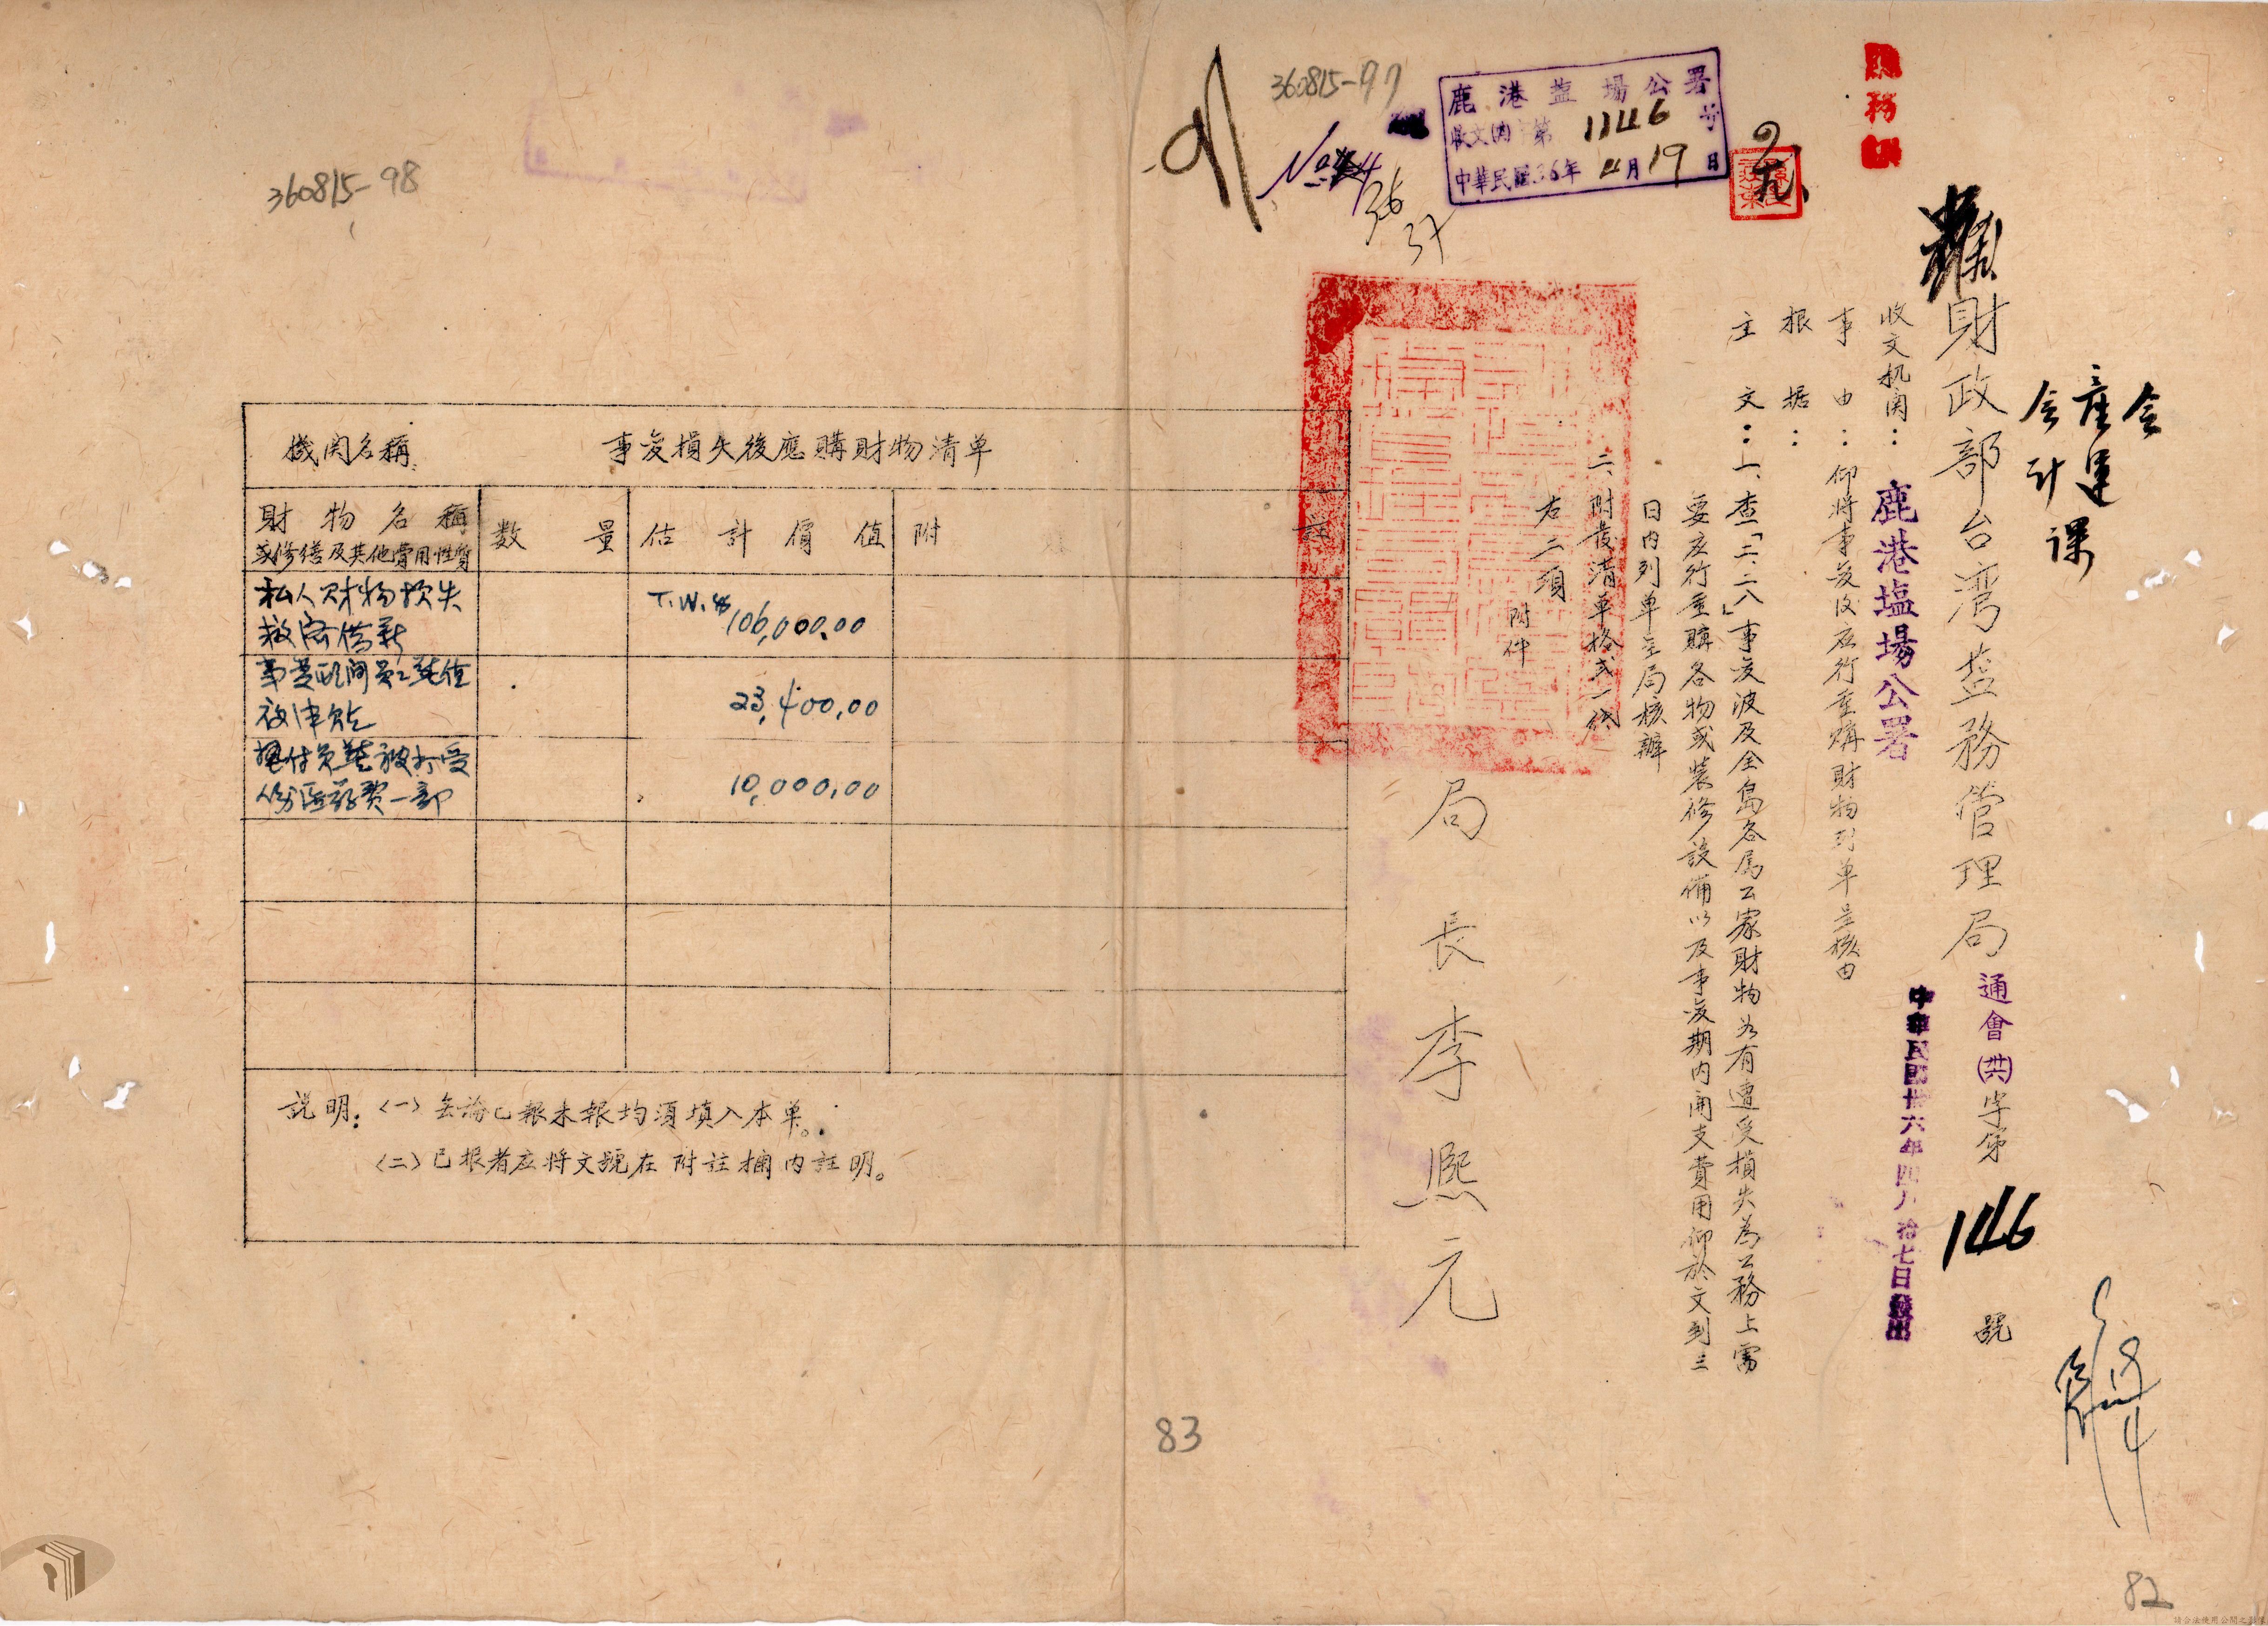 360815-97
鹿港盐場公署
收文(内)字第1146号
中華民國36年4月19日
會
產運課
會計
財政部台湾盐務管理局
通會(卅六)字第146號
中華民國卅六年四月拾七日發出
收文机関：鹿港塩場公署
事由：仰将事変後应行重購財物列单呈核由
根据：
主文：一、查「二.二八」事变波及全島各属公家財物如有遭受損失為公務上需
要应行重購各物或装修設備以及事变期内開支費用仰於文到三
日内列单呈局核辦
二、附發清单格式一份
右二項
附件
局長李熙元
82
360815-98
機関名稱
事变損失後應購財物清单
財物名稱
或修缮及其他費用性質
数量
估計價值
附註
私人财物损失
救濟借薪
T.W.$ 106,000.00
事变期间员工
夜津貼
23,400.00
被打受
伤医药费一部
10,000.00
説明：〈一〉无論已報未報均須填入本单。
〈二〉已报者应将文號在附註欄内註明。
83
請合法使用公開之影像